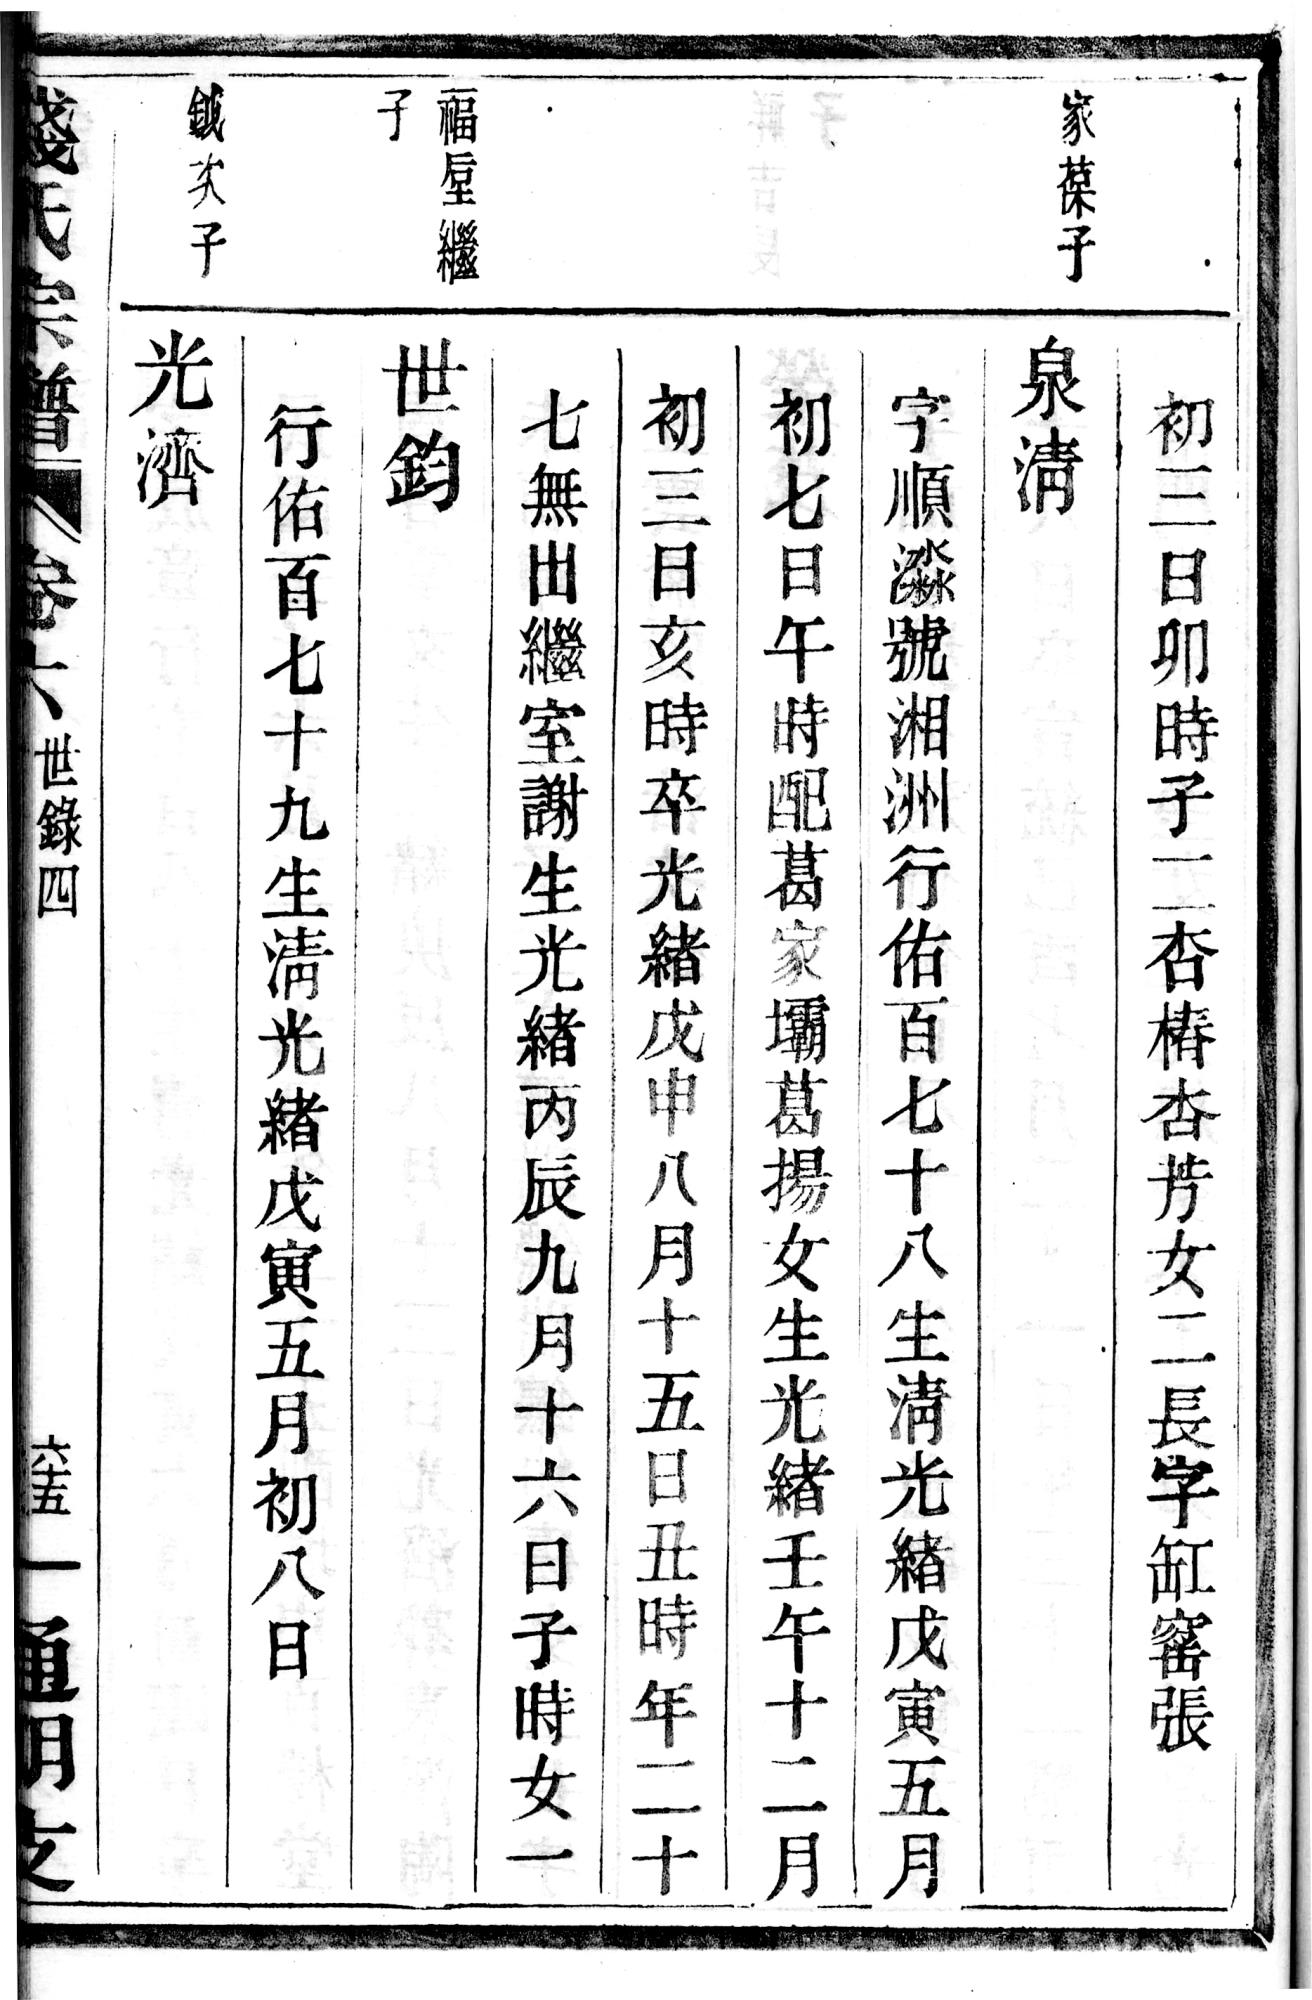 初三日卯時子二杏椿杏芳女二長字缸窰張
家葆子
泉淸
字順淼號湘洲行佑百七十八生淸光緒戊寅五月
初七日午時配葛家壩葛揚女生光緒壬午十二月
初三日亥時卒光緒戊申八月十五日丑時年二十
七無出繼室謝生光緒丙辰九月十六日子時女一
福垕繼
子
世鈞
行佑百七十九生淸光緒戊寅五月初八日
鉞次子
光濟
錢氏宗譜
卷六 世錄四
六十五
通明支